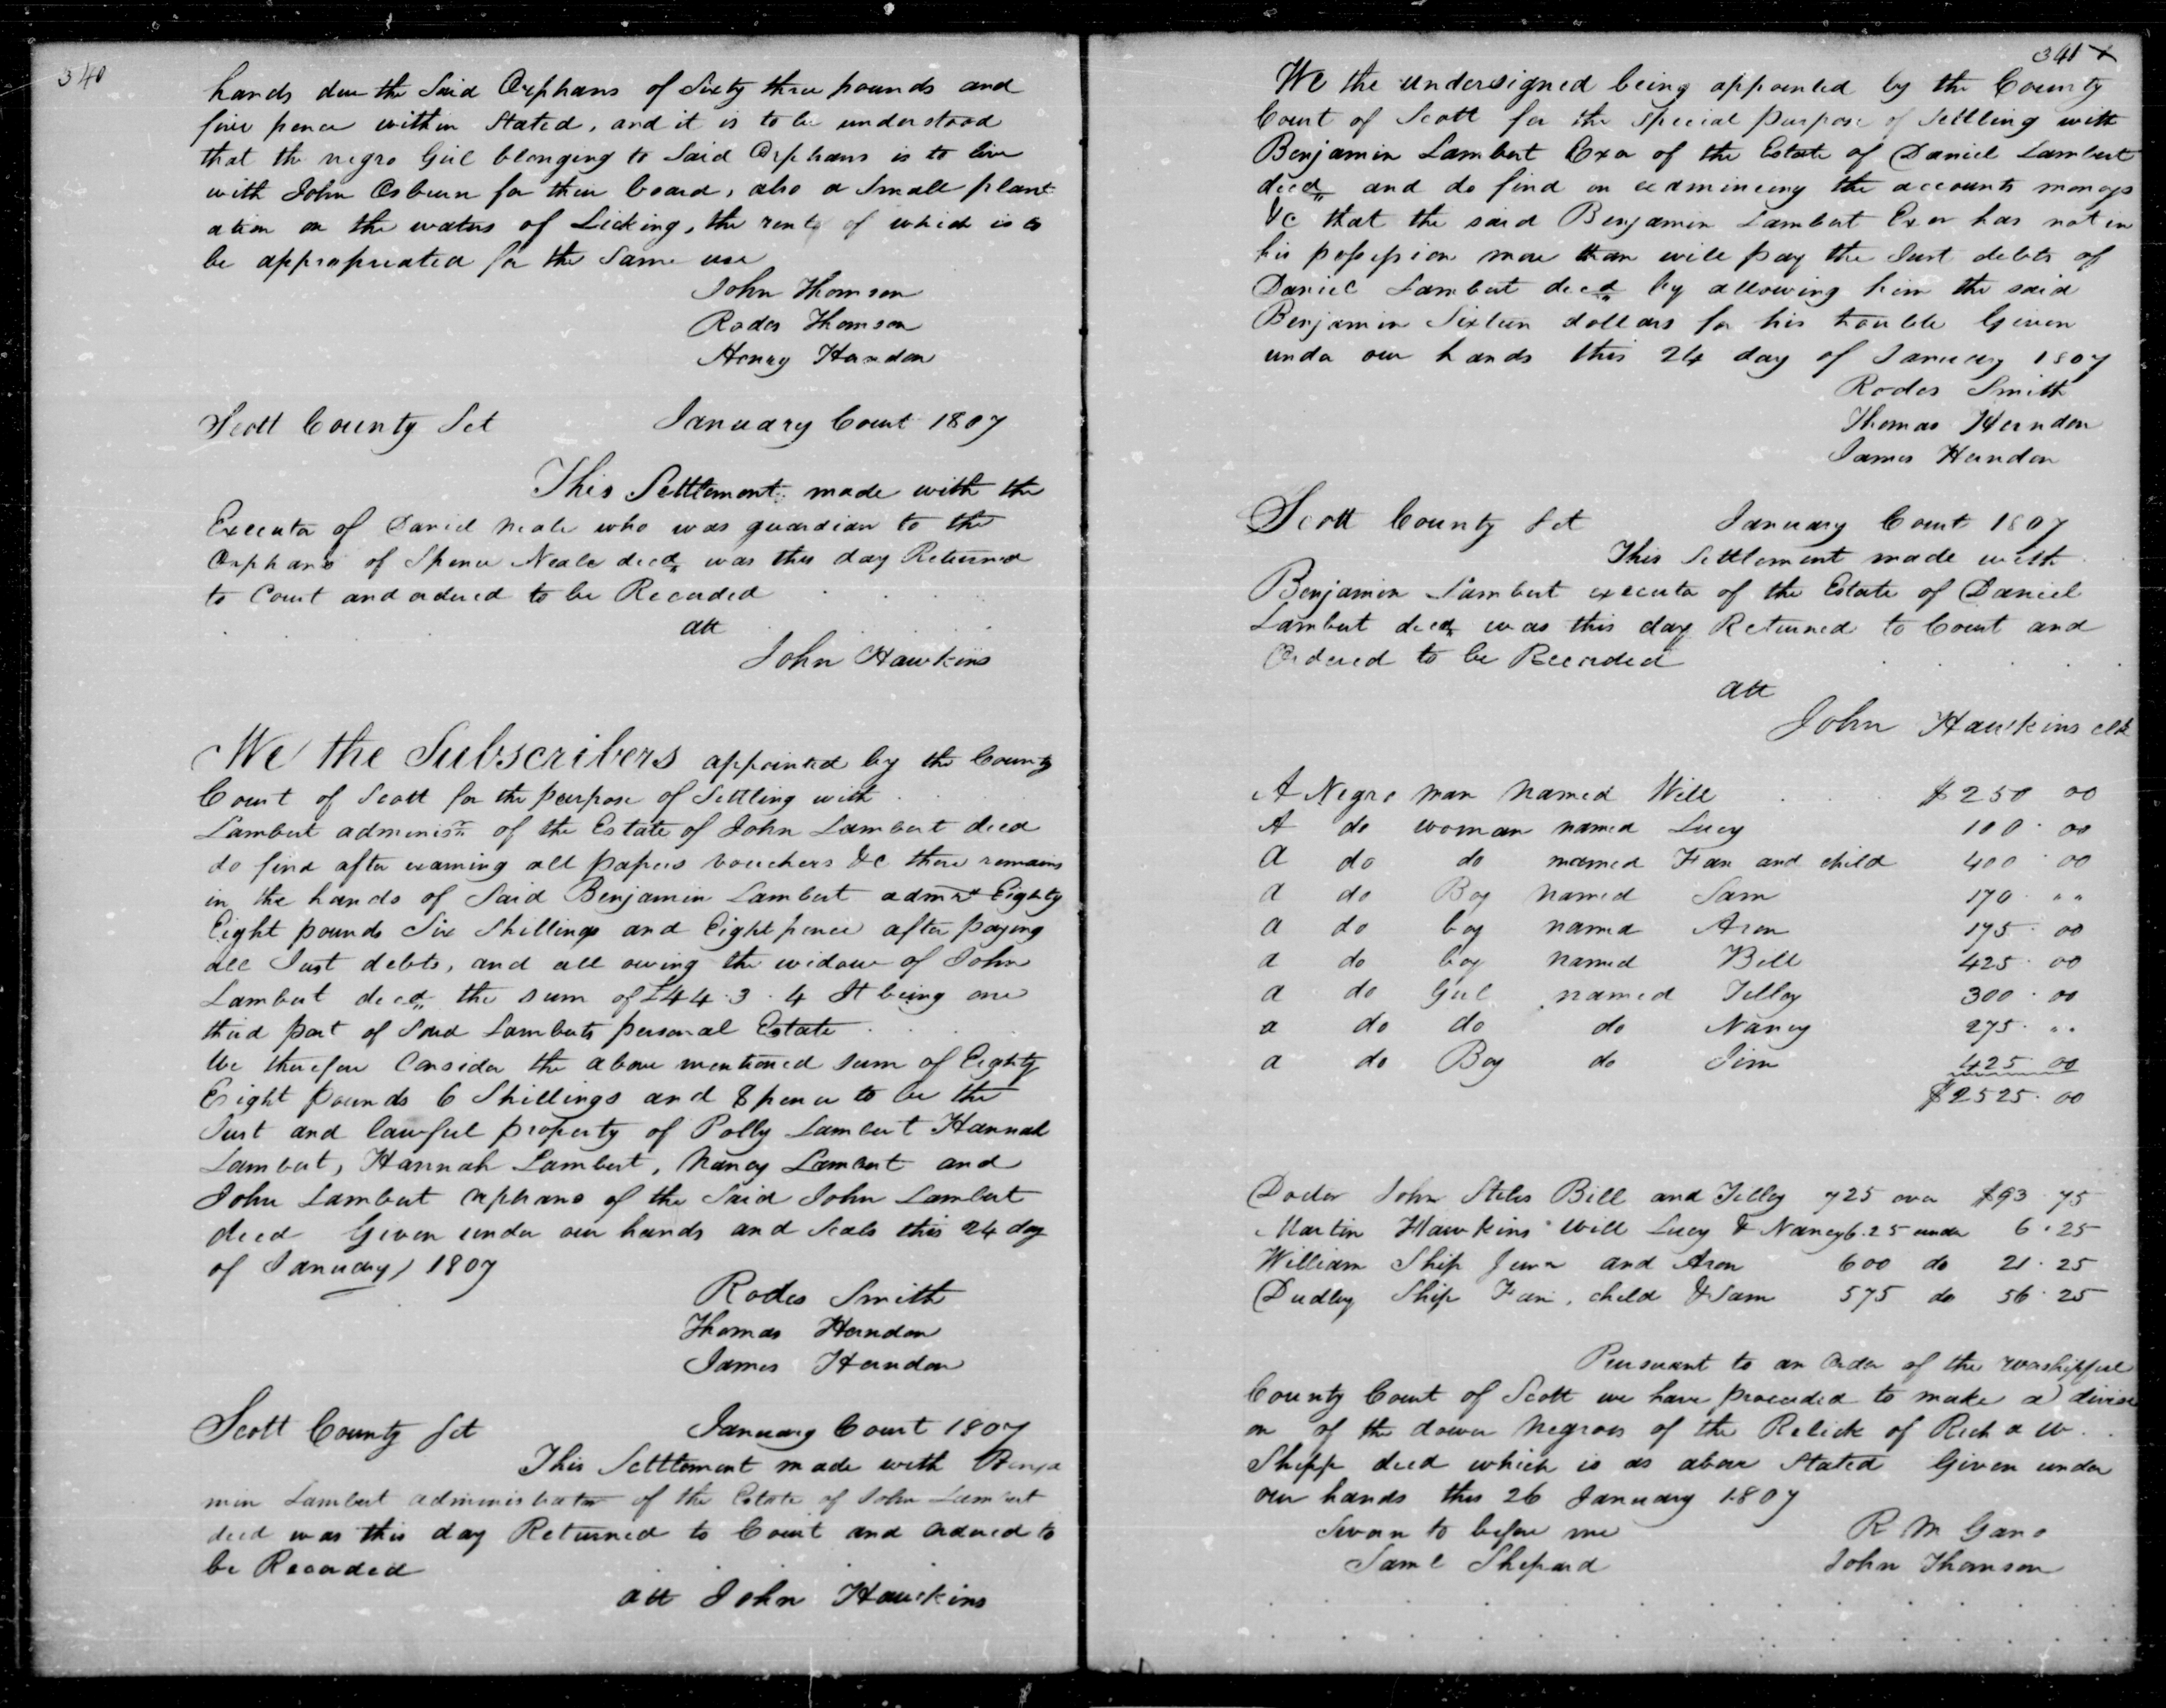 340
hands due the Said Orphans of Sixty three pounds and
five pence within Stated, and it is to be understood
that the negro Girl belonging to Said Orphans is to live
with John Osburn for their board, also a Small plant
ation on the waters of Licking, the rents of which is to
be appropriated for the Same use
John Thomson
Rodes Thomson
Henry Herndon
Scott County Sct January Court 1807
This Settlement made with the
Executor of Daniel Neale who was guardian to the
Orphans of Spence Neale decd was this day Returned
to Court and ordered to be Recorded
att
John Hawkins
We the Subscribers appointed by the County
Court of Scott for the purpose of Settling with
Lambert administr of the Estate of John Lambert decd
do find after examing all papers vouchers &c there remains
in the hands of Said Benjamin Lambert admr Eighty
Eight pounds Six Shillings and Eight pence after paying
all Just debts, and all owing the widow of John
Lambert decd the sum of £44.3.4 It being one
third part of Said Lamberts personal Estate
We therefore Consider the above mentioned sum of Eighty
Eight pounds 6 Shillings and 8 pence to be the
Just and lawful property of Polly Lambert Hannah
Lambert, Hannah Lambert, Nancy Lambert and
John Lambert orphans of the Said John Lambert
decd Given under our hands and Seals this 24 day
of January 1807
Rodes Smith
Thomas Herndon
James Herndon
Scott County Sct January Court 1807
This Settlement made with Benja
min Lambert administrator of the Estate of John Lambert
decd was this day Returned to Court and ordered to
be Recorded
att John Hawkins
341 X
We the undersigned being appointed by the County
Court of Scott for the special purpose of Settling with
Benjamin Lambert Exor of the Estate of Daniel Lambert
decd and do find on examineing the accounts monays
&c that the said Benjamin Lambert Exor has not in
his possession more than will pay the Just debts of
Daniel Lambert decd by allowing him the said
Benjamin Sixteen dollars for his trouble Given
under our hands this 24 day of January 1807
Rodes Smith
Thomas Herndon
James Herndon
Scott County Sct January Court 1807
This Settlement made with
Benjamin Lambert executor of the Estate of Daniel
Lambert decd was this day Returned to Court and
Ordered to be Recorded
att
John Hawkins clk
A Negro man Named Will $250 00
A do woman named Lucy 100 00
A do do named Fan and child 400 00
A do Boy named Sam 170 " "
A do boy named Aron 175 00
A do boy named Bill 425 00
A do Girl named Tilley 300 00
a do do do Nancy 275 " "
a do Boy do Jim 425 00
$2525.00
Doctor John Stiles Bill and Tilley 725 over $93.75
Martin Hawkins Will Lucy & Nancy 6.25 under 6.25
William Ship Junr and Aron 600 do 21.25
Dudley Ship Fan, child & Sam 575 do 56.25
Pursuant to an Order of the worshipful
County Court of Scott we have proceeded to make a divisi
on of the dower Negroes of the Relick of Richd W
Shipp decd which is as above Stated Given under
our hands this 26 January 1807
Sworn to before me R M Gano
Saml Shepard John Thomson